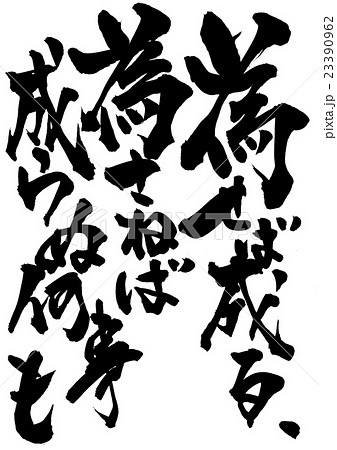 為せば成る、
為さねば
成らぬ何事も
PIXTA
pixta.jp - 23390962